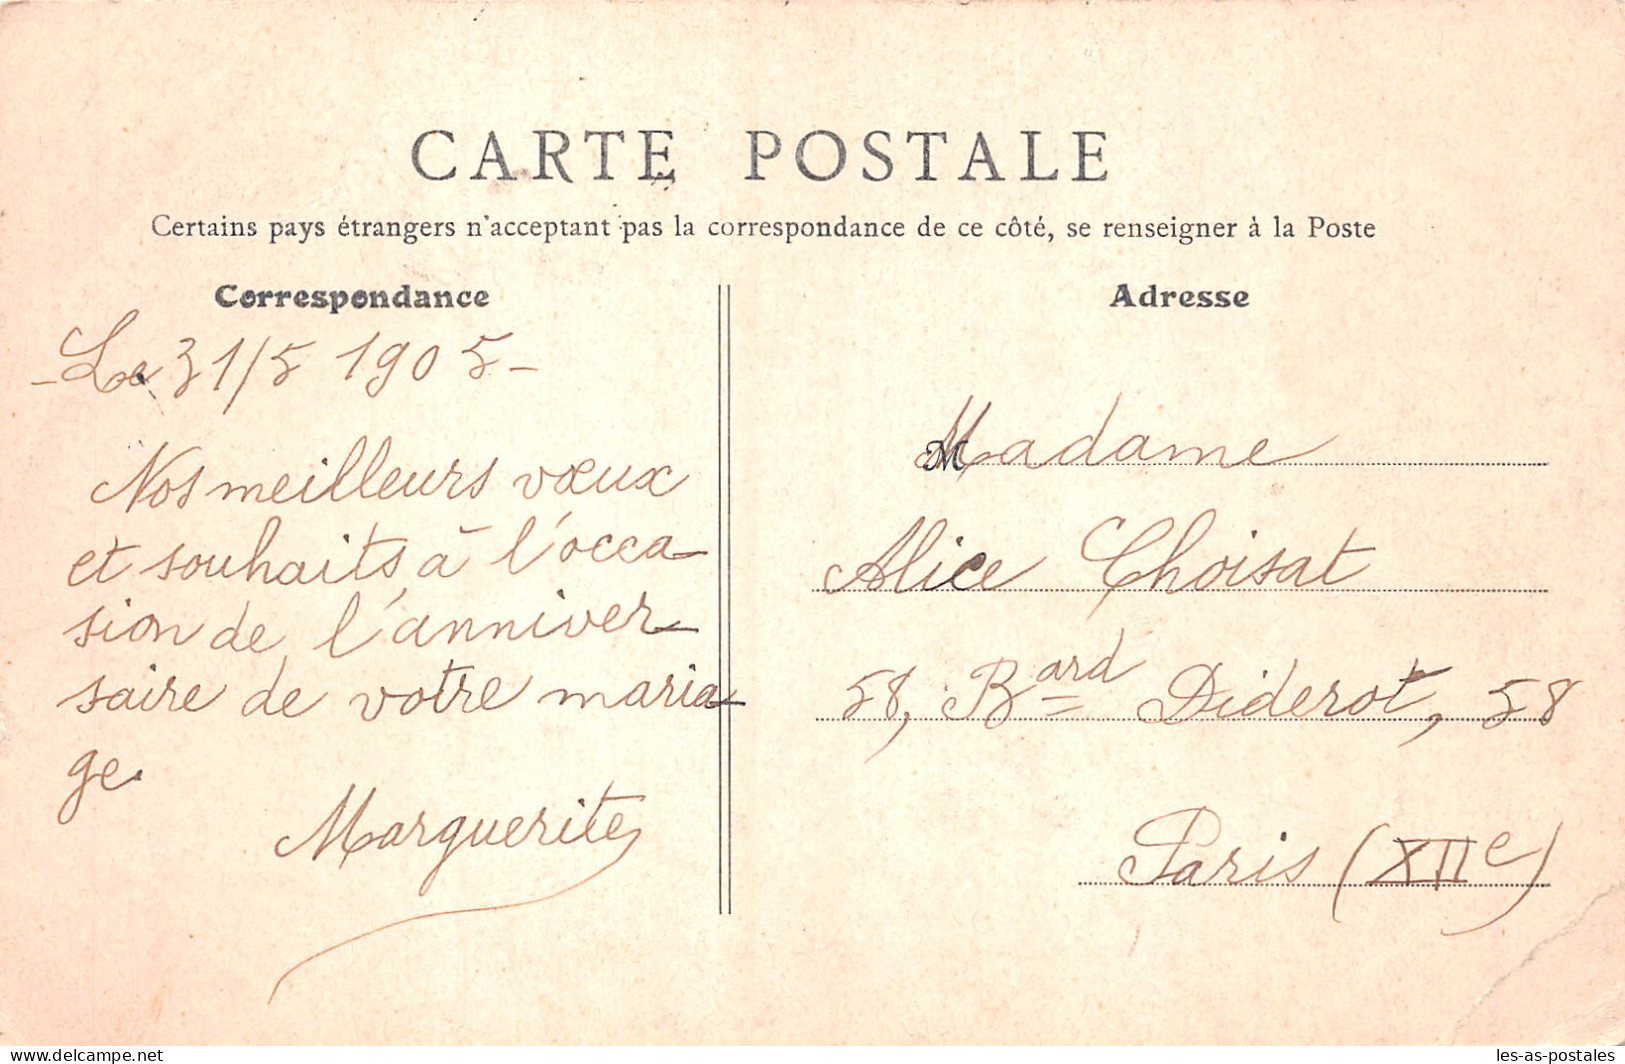 CARTE POSTALE
Certains pays étrangers n'acceptant pas la correspondance de ce côté, se renseigner à la Poste
Correspondance
- Le 31/5 1905 -
Nos meilleurs vœux
et souhaits à l'occa-
sion de l'anniver-
saire de votre maria-
ge.
Marguerite
Adresse
Madame
Alice Choisat
58, Bard Diderot, 58
Paris (XIIe)
delcampe.net
les-as-postales